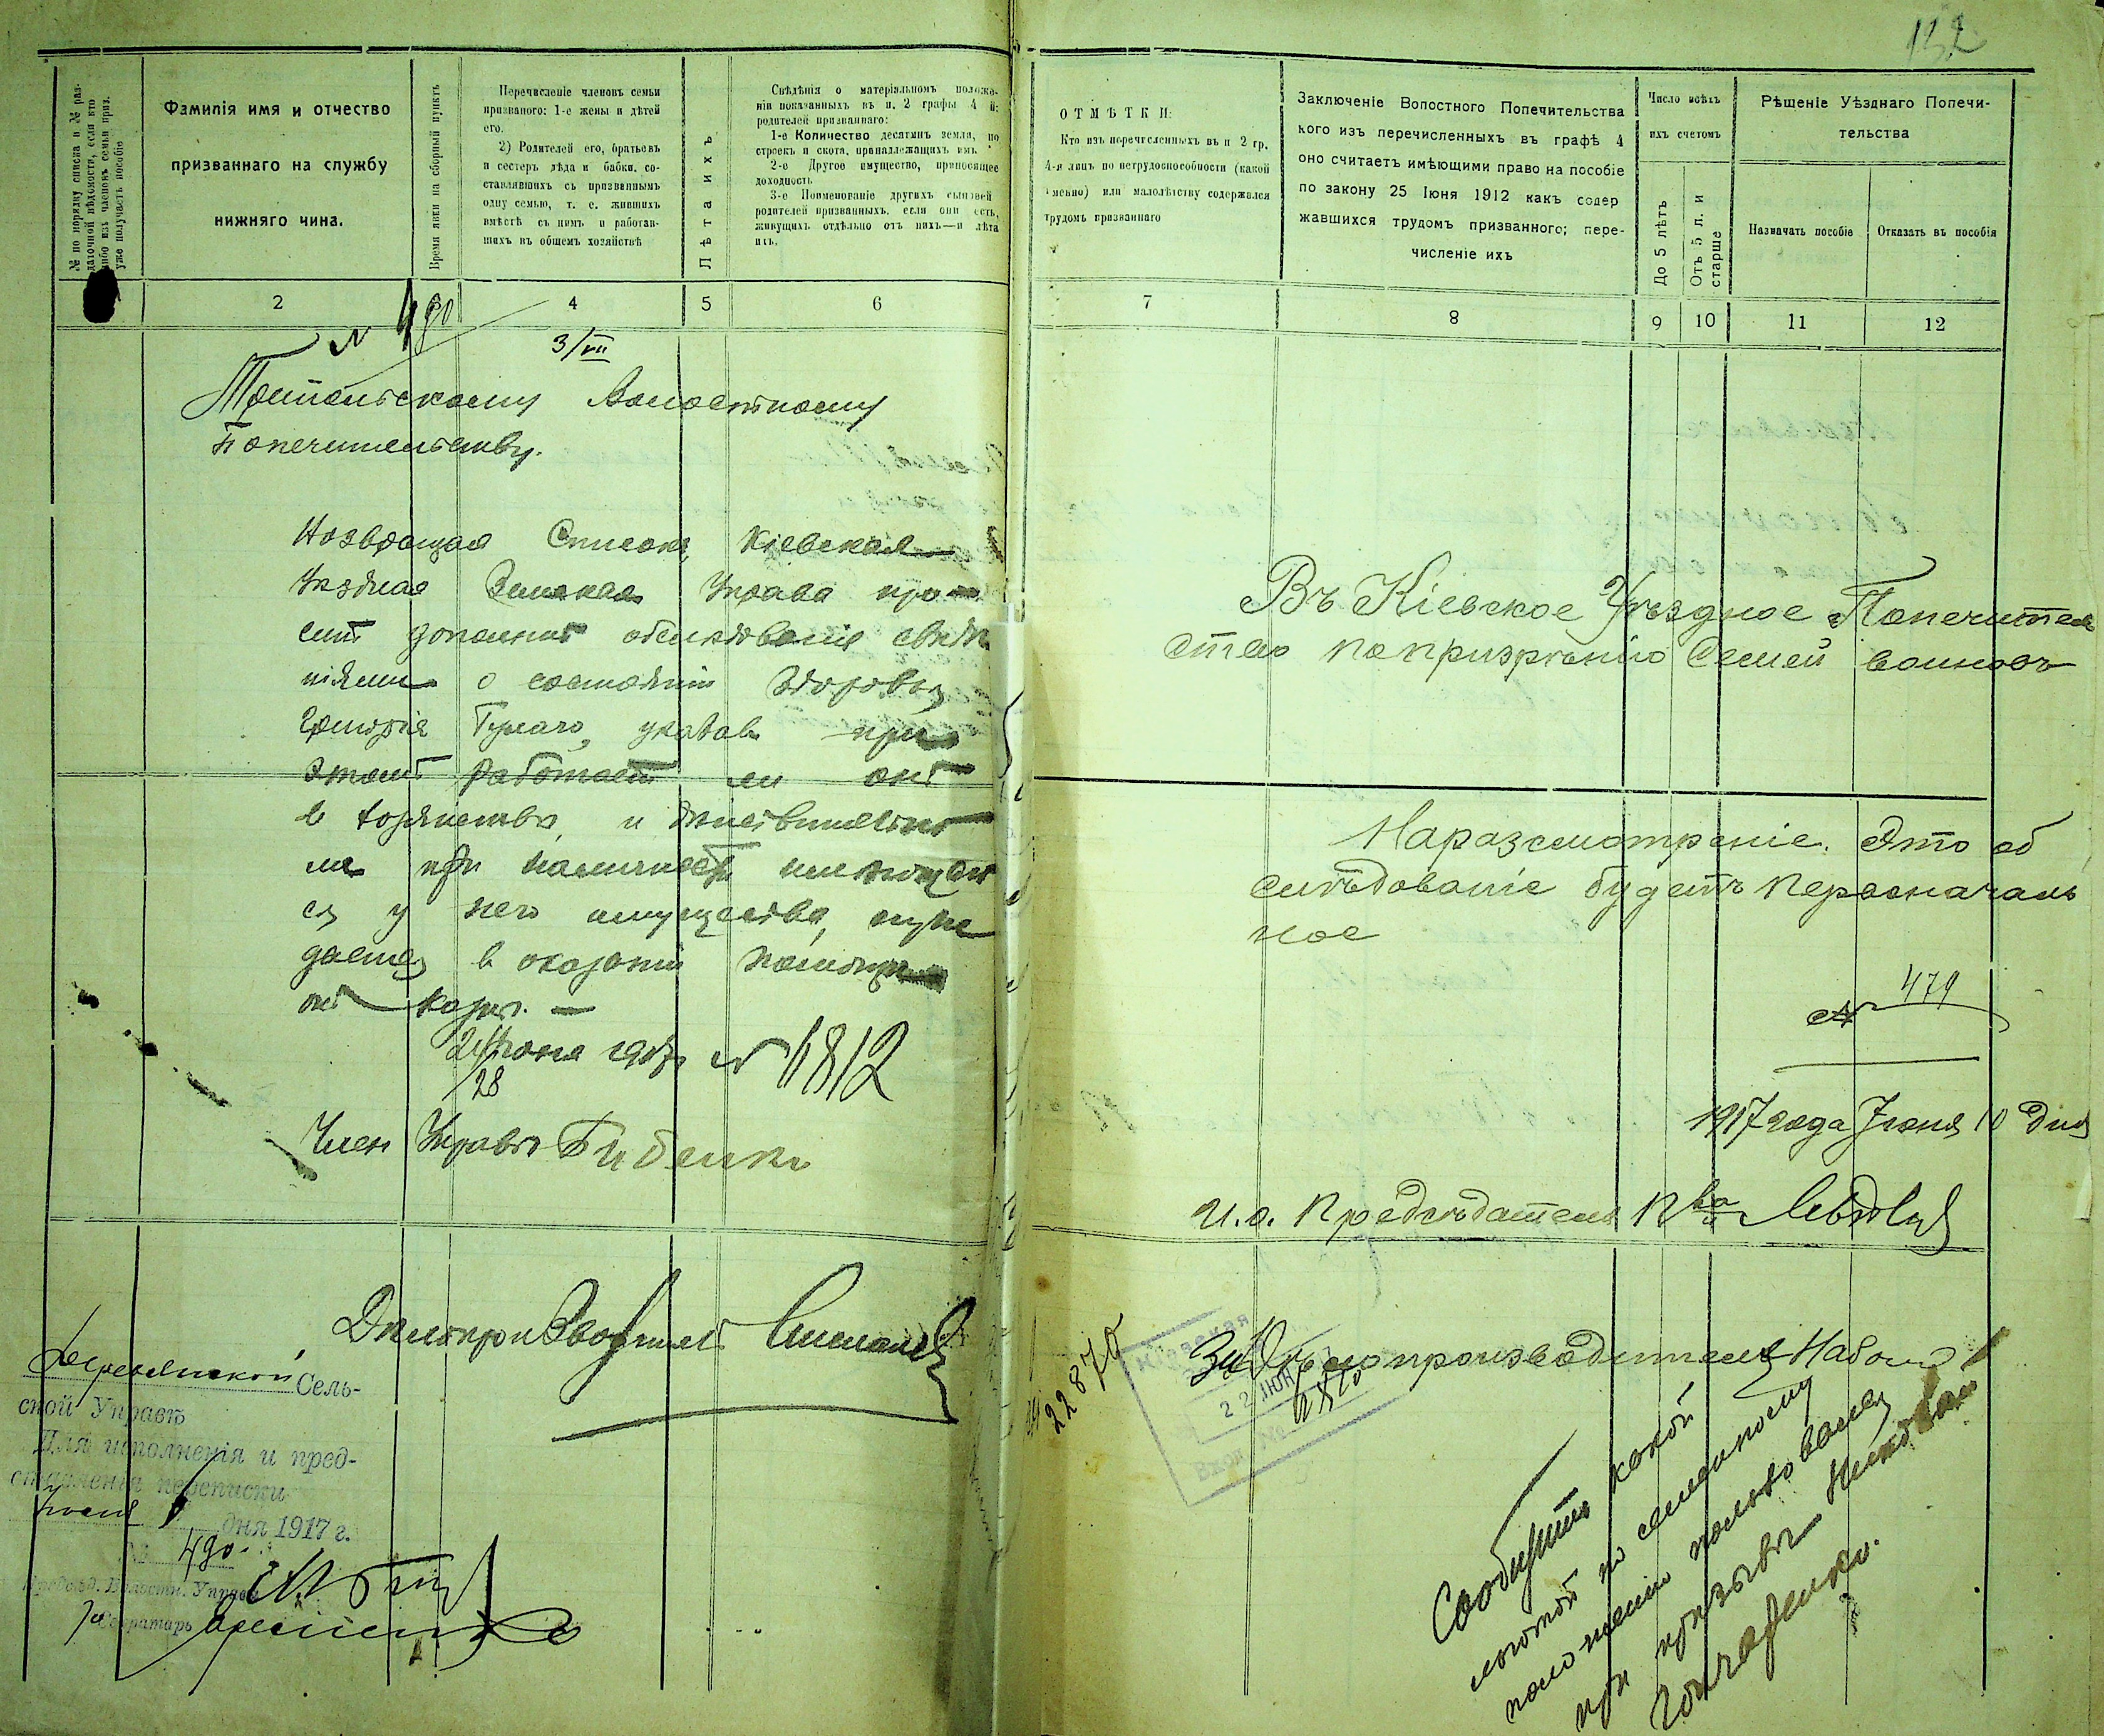 132
№ по порядку списка и № раз-
даточной вѣдомости, если кто
либо изъ членовъ семьи приз.
уже получаетъ пособіе
Фамилія имя и отчество
призваннаго на службу
нижняго чина.
Время явки на сборный пунктъ
Перечисленіе членовъ семьи
призваного: 1-е жены и дѣтей
его.
2) Родителей его, братьевъ
и сестеръ дѣда и бабки, со-
ставлявшихъ съ призваннымъ
одну семью, т. е. жившихъ
вмѣстѣ съ нимъ и работав-
шихъ въ общемъ хозяйствѣ
Лѣта ихъ
Свѣдѣнія о матеріальномъ положе-
ніи показанныхъ въ п. 2 графы 4 й:
родителей призваннаго:
1-е Количество десятинъ земли, по
строекъ и скота, принадлежащихъ имъ.
2-е Другое имущество, приносящее
доходность
3-е Поименованіе другихъ сыновей
родителей призванныхъ, если они есть,
живущихъ отдѣльно отъ нихъ—и лѣта
ихъ.
2 3 4 5 6
№ 490
3/VII
Волостному
Попечительству.
Возвращая Списокъ, Кіевская
Уездная Земская Управа про-
ситъ дополнить обследованіе сведе-
ніями о состояніи здоровья
Григорія указавъ при
этомъ работаетъ ли онъ
в хозяйстве, и действительно
ли при наличности имеющаго
ся у него имущества, нуж
дается в оказаніи помощи
отъ казны. —
28 Іюня 1917 г. № 6812
Член Управы
Деревянской Сель-
ской Управѣ
Для исполненія и пред-
ставленія переписки
Іюля дня 1917 г.
№ 490.
Предсѣд. Волостн. Управы
За Секретарь
ОТМѢТКИ:
Кто изъ перечисленныхъ въ п 2 гр.
4-я лицъ по нетрудоспособности (какой
именно) или малолѣтству содержался
трудомъ призваннаго
Заключеніе Волостного Попечительства
кого изъ перечисленныхъ въ графѣ 4
оно считаетъ имѣющими право на пособіе
по закону 25 Іюня 1912 какъ содер
жавшихся трудомъ призванного; пере-
численіе ихъ
Число всѣхъ
ихъ счетомъ
До 5 лѣтъ
Отъ 5 л. и
старше
Рѣшеніе Уѣзднаго Попечи-
тельства
Назначать пособіе
Отказать въ пособія
7 8 9 10 11 12
Въ Кіевское Уѣздное Попечитель
ство по призрѣнію Семей воиновъ
На разсмотреніе. Это об
слѣдованіе будетъ первоначаль
ное
№ 479
1917 года Іюня 10 дня
И. о. Предсѣдателя П-ва
За Дѣлопроизводителя
22870
22 ІЮН
Вход. №
6810
Сообщить какой
льготой по семейному
положенію пользовался
при призывѣ
Гончаренко.